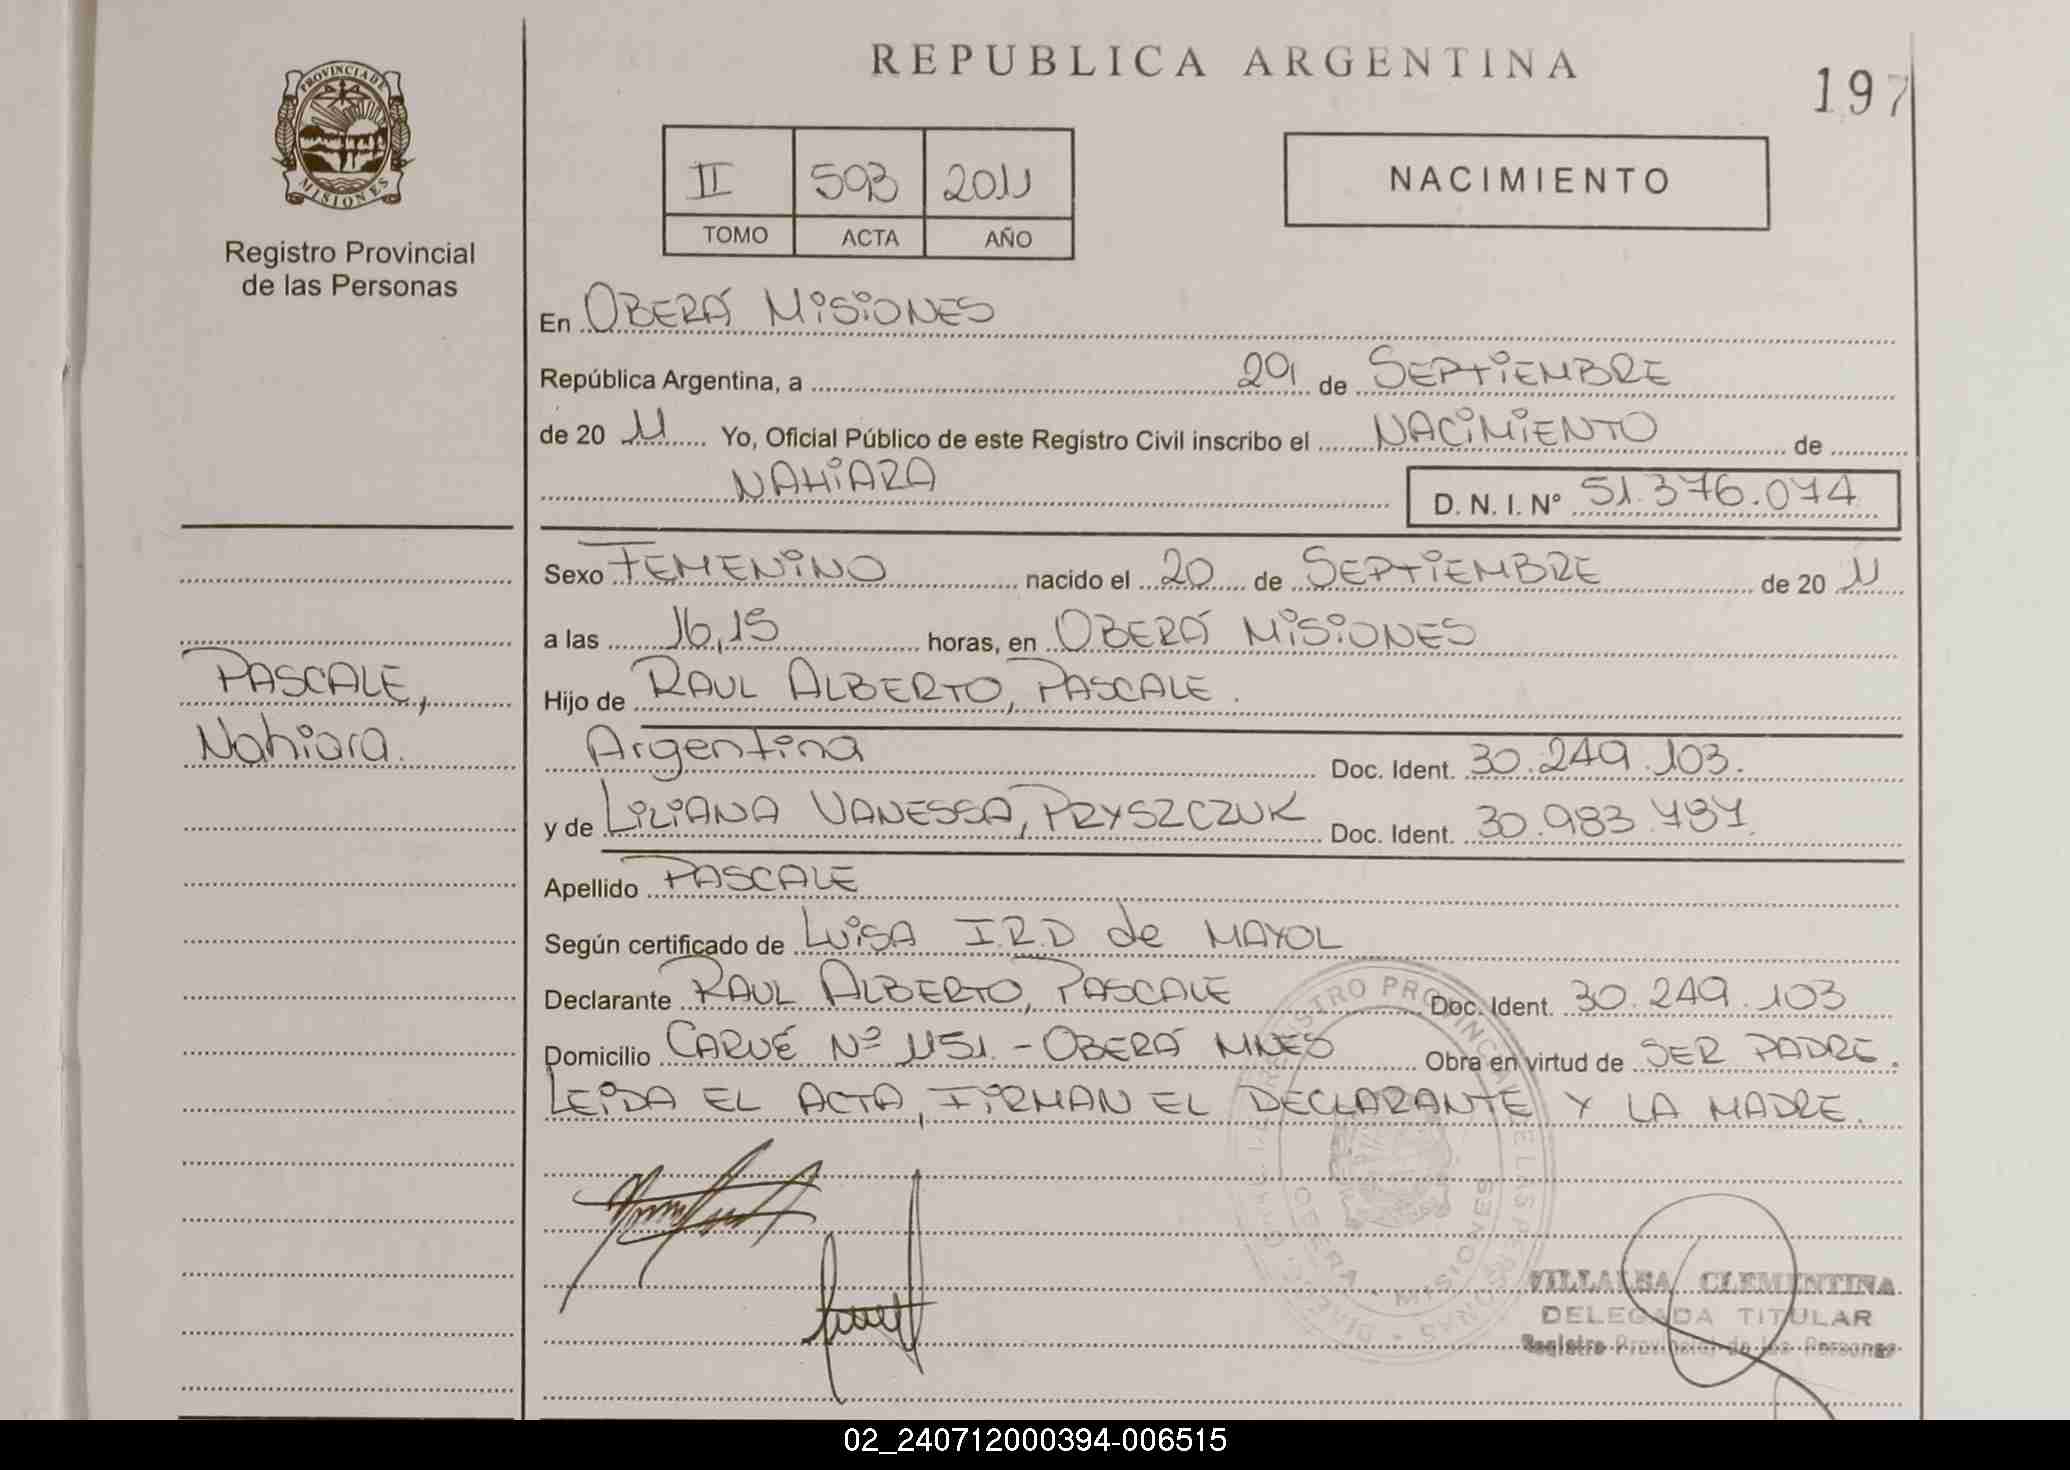 REPUBLICA ARGENTINA
197
PROVINCIA DE
MISIONES
Registro Provincial
de las Personas
II 593 2011
TOMO ACTA AÑO
NACIMIENTO
En OBERÁ MISIONES
República Argentina, a 29 de SEPTIEMBRE
de 20 11 Yo, Oficial Público de este Registro Civil inscribo el NACIMIENTO de
NAHIARA D. N. I. Nº 51.376.074
Sexo FEMENINO nacido el 20 de SEPTIEMBRE de 20 11
a las 16,15 horas, en OBERÁ MISIONES
PASCALE,
Hijo de RAUL ALBERTO, PASCALE.
Nahiara.
Argentina Doc. Ident. 30.249.103.
y de LILIANA VANESSA, PRYSZCZUK Doc. Ident. 30.983.787.
Apellido PASCALE
Según certificado de LUISA I.R.D de MAYOL
Declarante RAUL ALBERTO, PASCALE Doc. Ident. 30.249.103
Domicilio CARUÉ Nº 1151. - OBERÁ MNES Obra en virtud de SER PADRE.
LEIDA EL ACTA, FIRMAN EL DECLARANTE Y LA MADRE.
REGISTRO PROVINCIAL DE LAS PERSONAS
OBERA - MISIONES
VILLALBA CLEMENTINA
DELEGADA TITULAR
Registro Provincial de las Personas
02_240712000394-006515